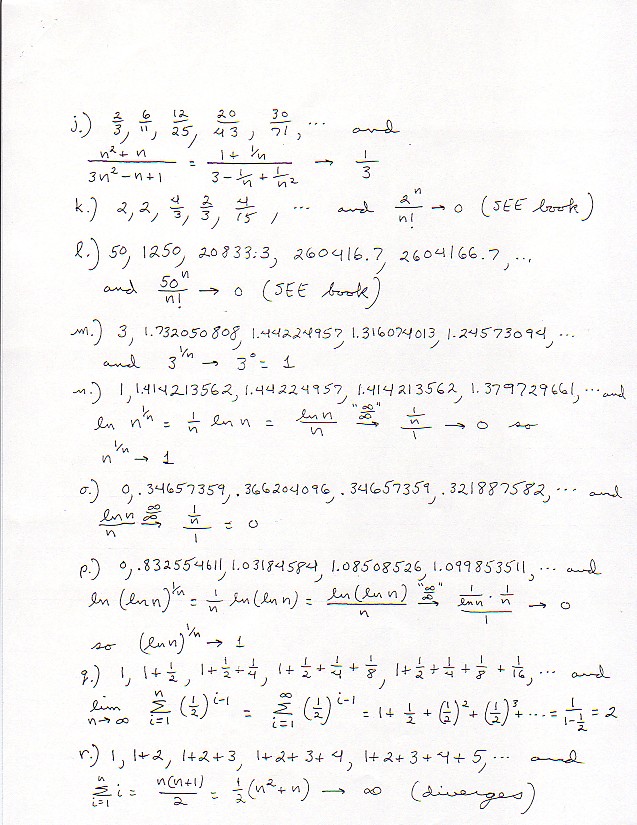 j.) 2/3, 6/11, 12/25, 20/43, 30/71, ... and
(n²+n)/(3n²-n+1) = (1+1/n)/(3-1/n+1/n²) → 1/3
k.) 2, 2, 4/3, 2/3, 4/15, ... and 2ⁿ/n! → 0 (SEE book)
l.) 50, 1250, 20833.3, 260416.7, 2604166.7, ...
and 50ⁿ/n! → 0 (SEE book)
m.) 3, 1.732050808, 1.44224957, 1.316074013, 1.24573094, ...
and 3^(1/n) → 3° = 1
n.) 1, 1.414213562, 1.44224957, 1.414213562, 1.379729661, ... and
ln n^(1/n) = 1/n ln n = (ln n)/n "∞/∞"→ (1/n)/1 → 0 so
n^(1/n) → 1
o.) 0, .34657359, .366204096, .34657359, .321887582, ... and
(ln n)/n ∞/∞→ (1/n)/1 = 0
p.) 0, .832554611, 1.03184584, 1.08508526, 1.099853511, ... and
ln (ln n)^(1/n) = 1/n ln(ln n) = (ln(ln n))/n "∞/∞"→ (1/(ln n) · 1/n)/1 → 0
so (ln n)^(1/n) → 1
q.) 1, 1+1/2, 1+1/2+1/4, 1+1/2+1/4+1/8, 1+1/2+1/4+1/8+1/16, ... and
lim n→∞ Σ i=1 n (1/2)^(i-1) = Σ i=1 ∞ (1/2)^(i-1) = 1+1/2+(1/2)²+(1/2)³+... = 1/(1-1/2) = 2
r.) 1, 1+2, 1+2+3, 1+2+3+4, 1+2+3+4+5, ... and
Σ i=1 n i = n(n+1)/2 = 1/2(n²+n) → ∞ (diverges)